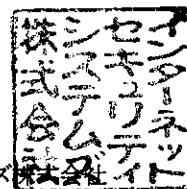 インターネット
セキュリティ
システムズ
株式会社
ズ株式会社